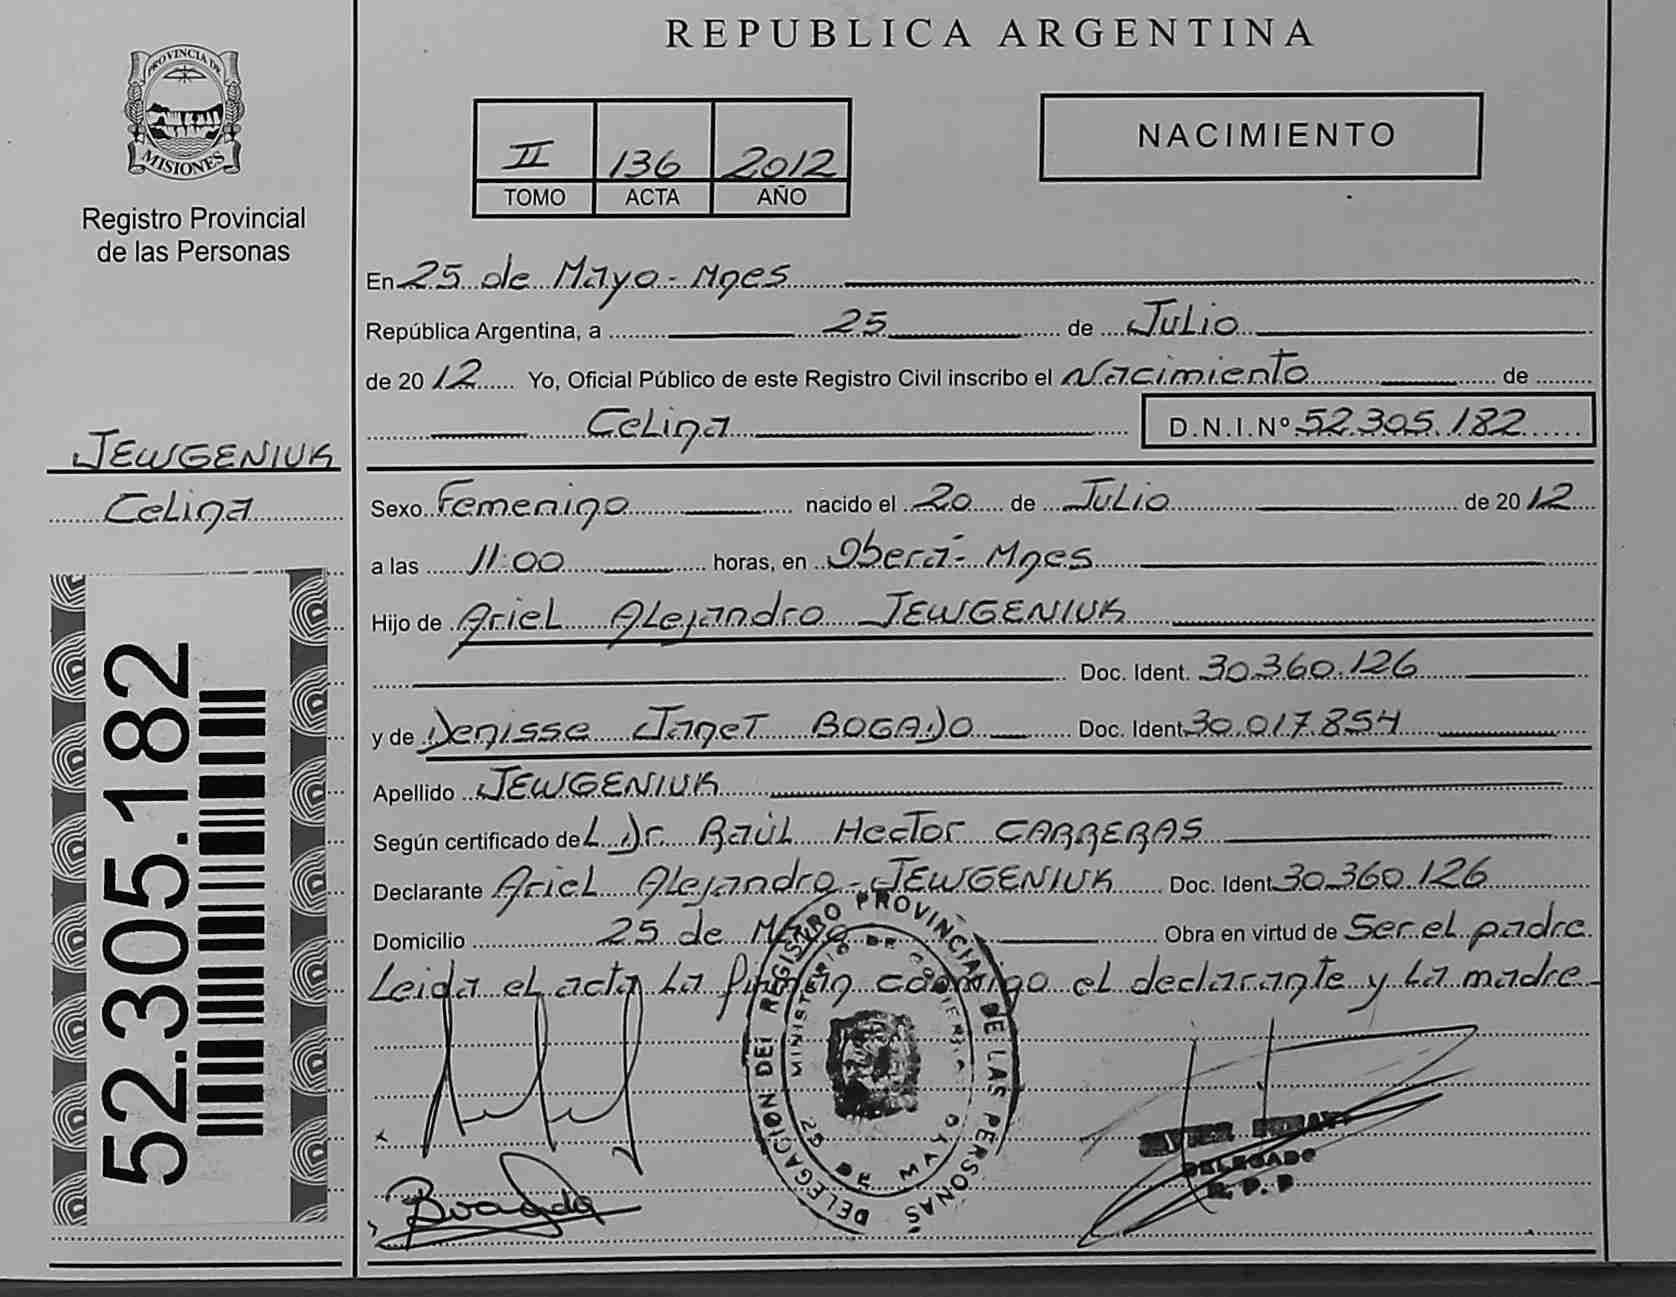 REPUBLICA ARGENTINA
PROVINCIA DE
MISIONES
Registro Provincial
de las Personas
II 136 2012
TOMO ACTA AÑO
NACIMIENTO
En 25 de Mayo - Mnes
República Argentina, a 25 de Julio
de 20 12 Yo, Oficial Público de este Registro Civil inscribo el Nacimiento de
Celina D.N.I.Nº 52.305.182
JEWGENIUK
Celina
52.305.182
Sexo Femenino nacido el 20 de Julio de 20 12
a las 11:00 horas, en Oberá - Mnes
Hijo de Ariel Alejandro JEWGENIUK
Doc. Ident. 30.360.126
y de Denisse Janet BOGADO Doc. Ident. 30.017.854
Apellido JEWGENIUK
Según certificado de L Dr. Raúl Hector CARRERAS
Declarante Ariel Alejandro JEWGENIUK Doc. Ident. 30.360.126
Domicilio 25 de Mayo Obra en virtud de Ser el padre
Leida el acta La firman conmigo el declarante y La madre
DELEGACION DEL REGISTRO PROVINCIAL DE LAS PERSONAS
MINISTERIO DE GOBIERNO
25 DE MAYO
DELEGADO
R. P. P